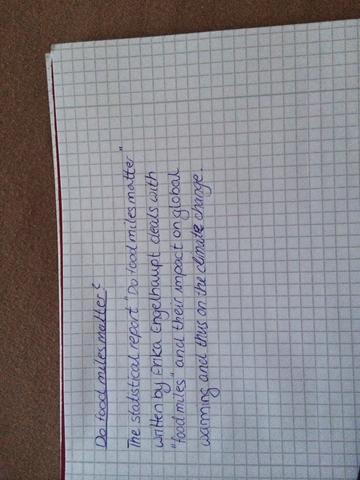 Do food miles matter?
The statistical report "Do food miles matter"
written by Erika Engelhaupt deals with
"food miles" and their impact on global
warming and thus on the climate change.